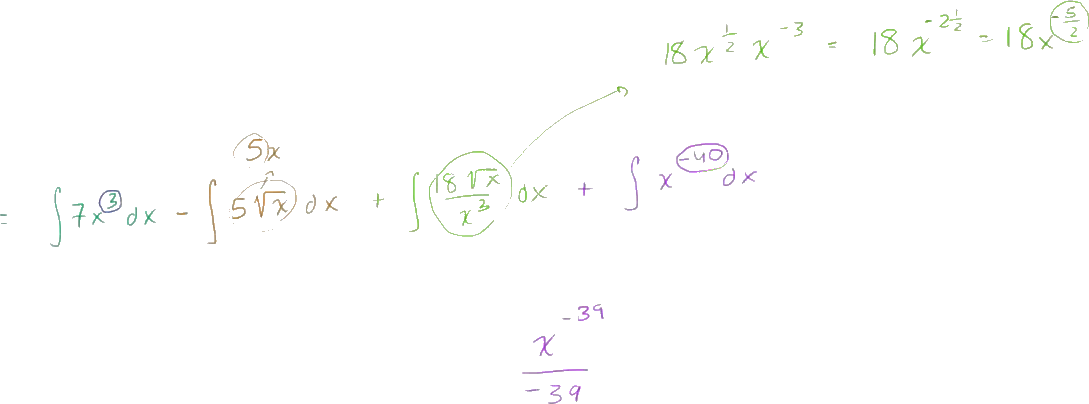 18 x^{1/2} x^{-3} = 18 x^{-2 1/2} = 18x^{-5/2}
5x
= ∫7x^3 dx - ∫5√x dx + ∫ 18√x / x^3 dx + ∫ x^{-40} dx
x^{-39}
-39